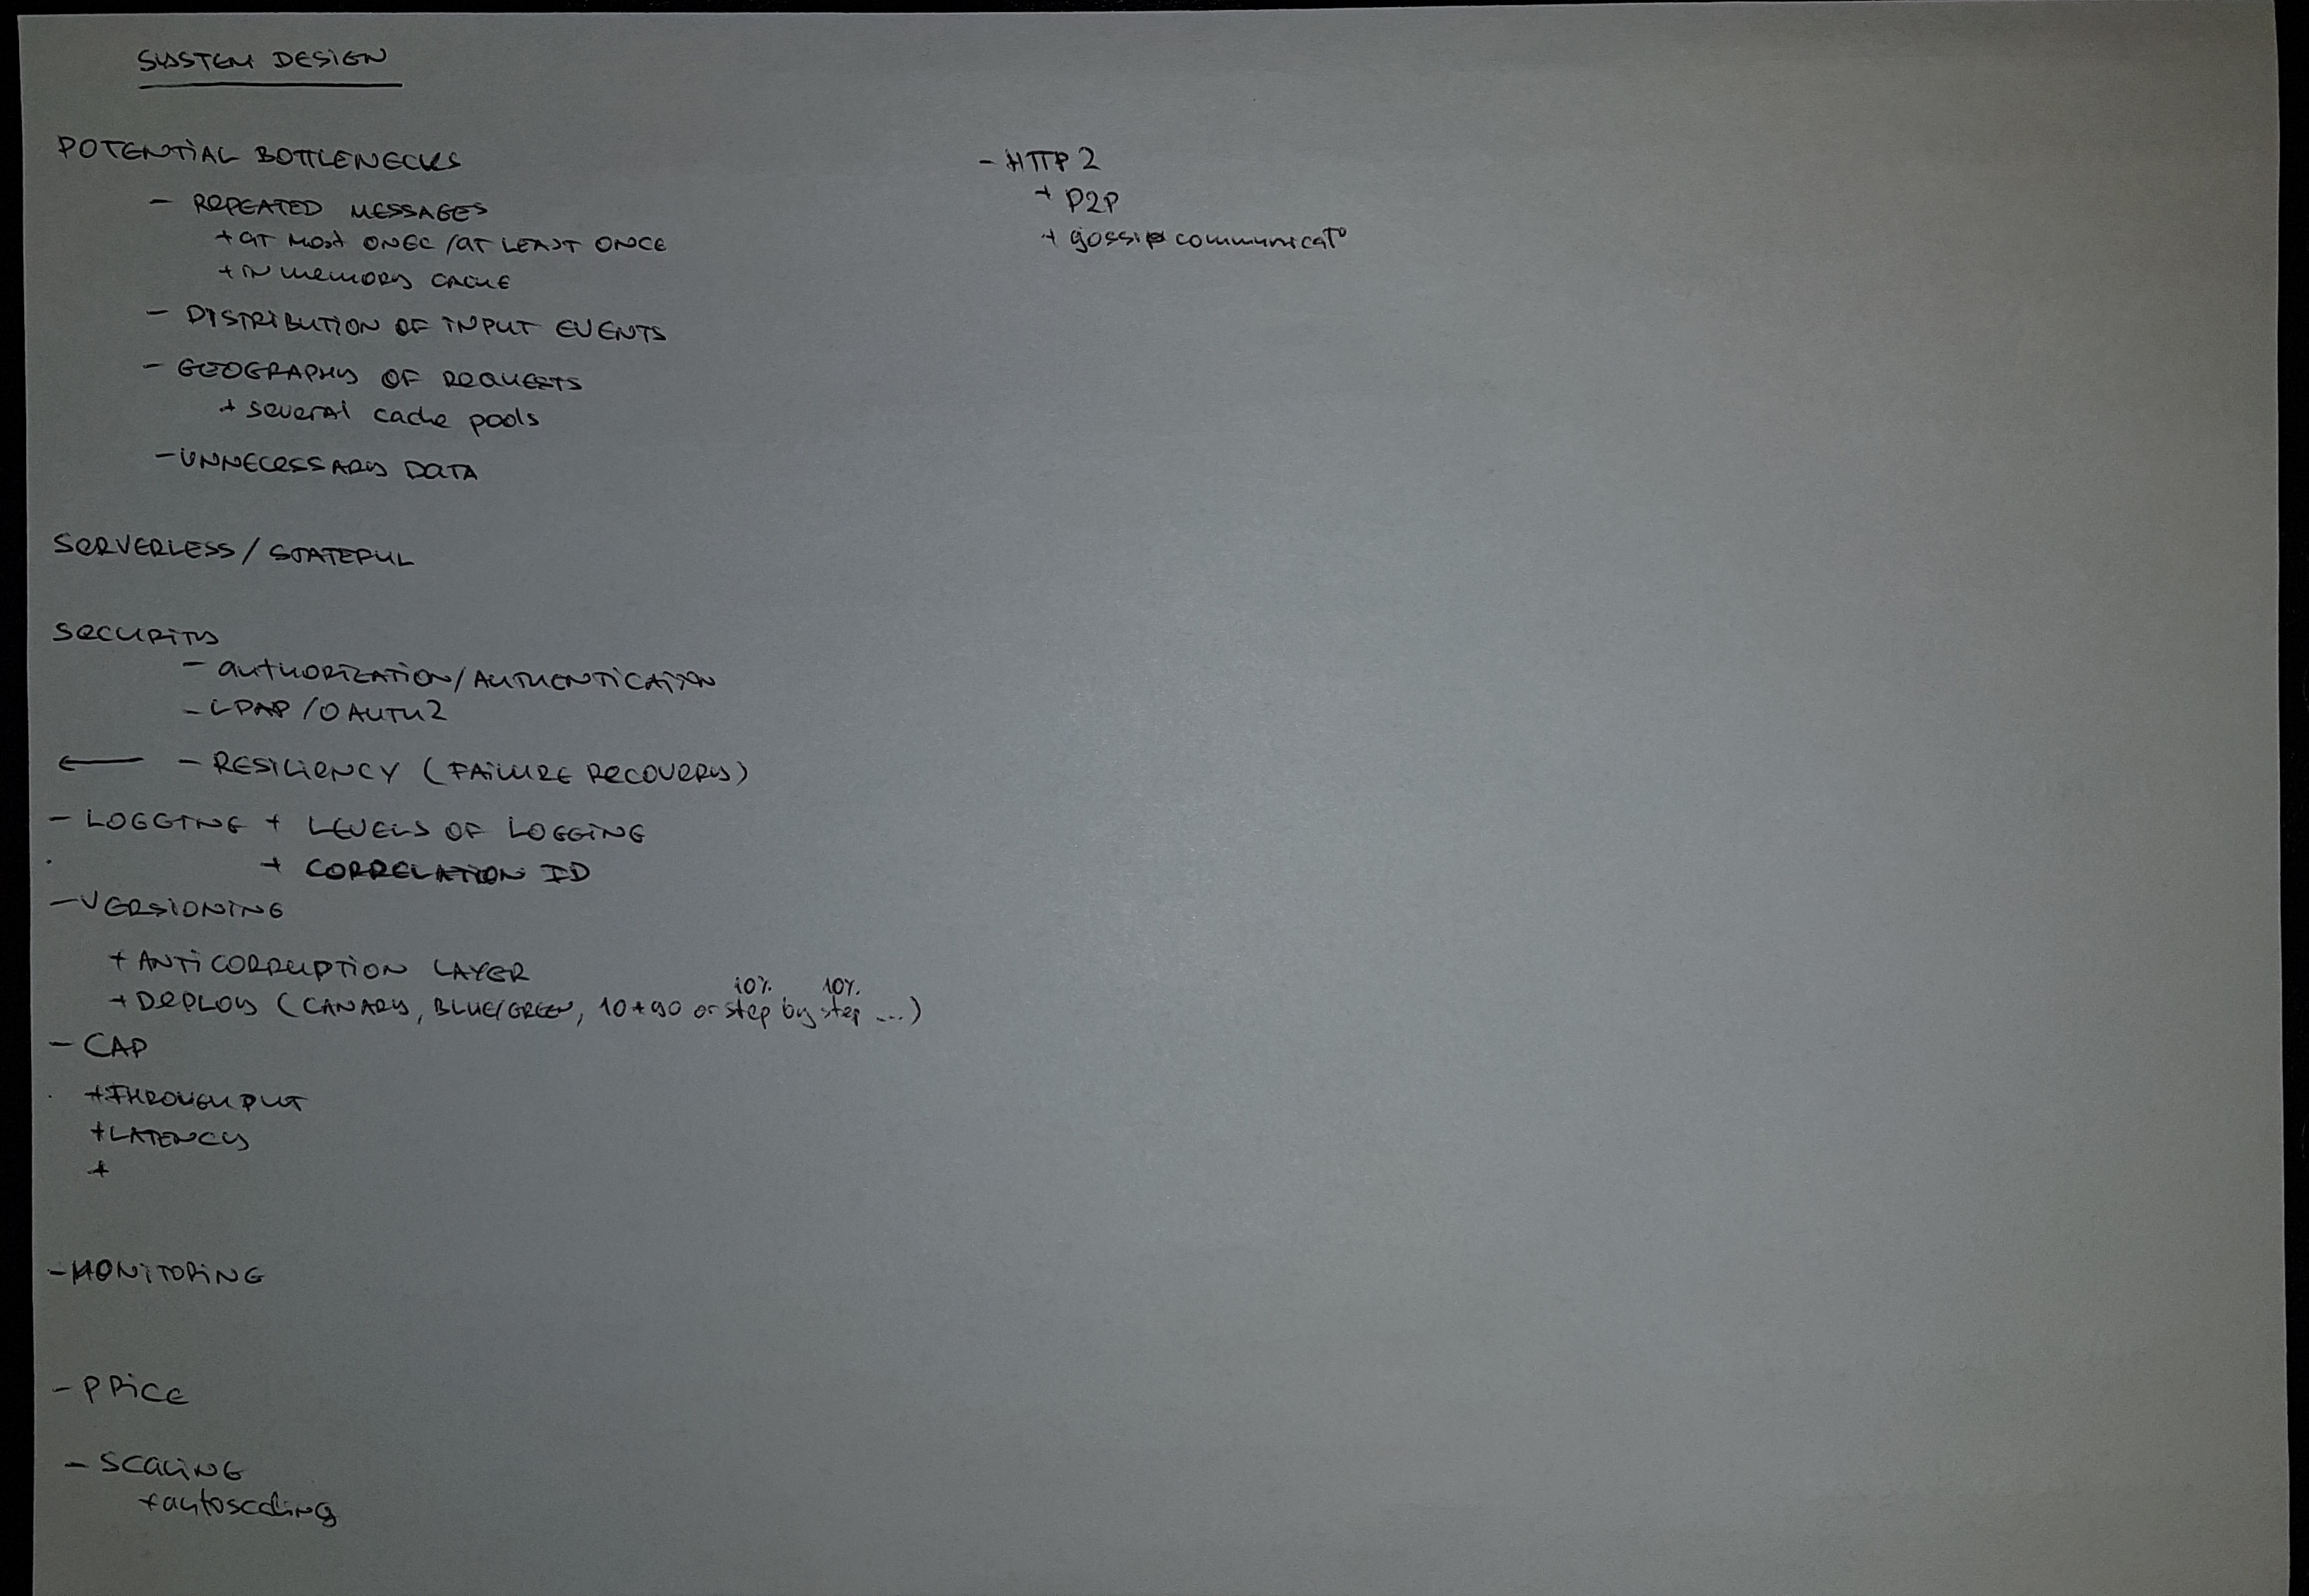 SYSTEM DESIGN
POTENTIAL BOTTLENECKS
- REPEATED MESSAGES
+ at most ONEC / at LEAST ONCE
+ IN memory CACHE
- DISTRIBUTION OF INPUT EVENTS
- GEOGRAPHY OF REQUESTS
+ several cache pools
- UNNECESSARY DATA
SERVERLESS / STATEFUL
SECURITY
- AUTHORIZATION / AUTHENTICATION
- LDAP / OAUTH2
← - RESILIENCY (FAILURE RECOVERY)
- LOGGING + LEVELS OF LOGGING
+ CORRELATION ID
- VERSIONING
+ ANTICORRUPTION LAYER
10% 10%
+ DEPLOY (CANARY, BLUE/GREEN, 10+90 or step by step ...)
- CAP
+ THROUGHPUT
+ LATENCY
+
- MONITORING
- PRICE
- SCALING
+ autoscaling
- HTTP 2
+ P2P
+ gossip communicat°